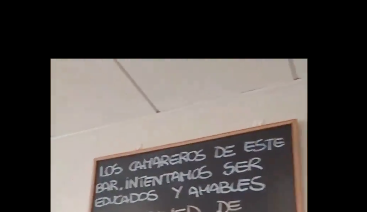 LOS CAMAREROS DE ESTE
BAR, INTENTAMOS SER
EDUCADOS Y AMABLES
DE